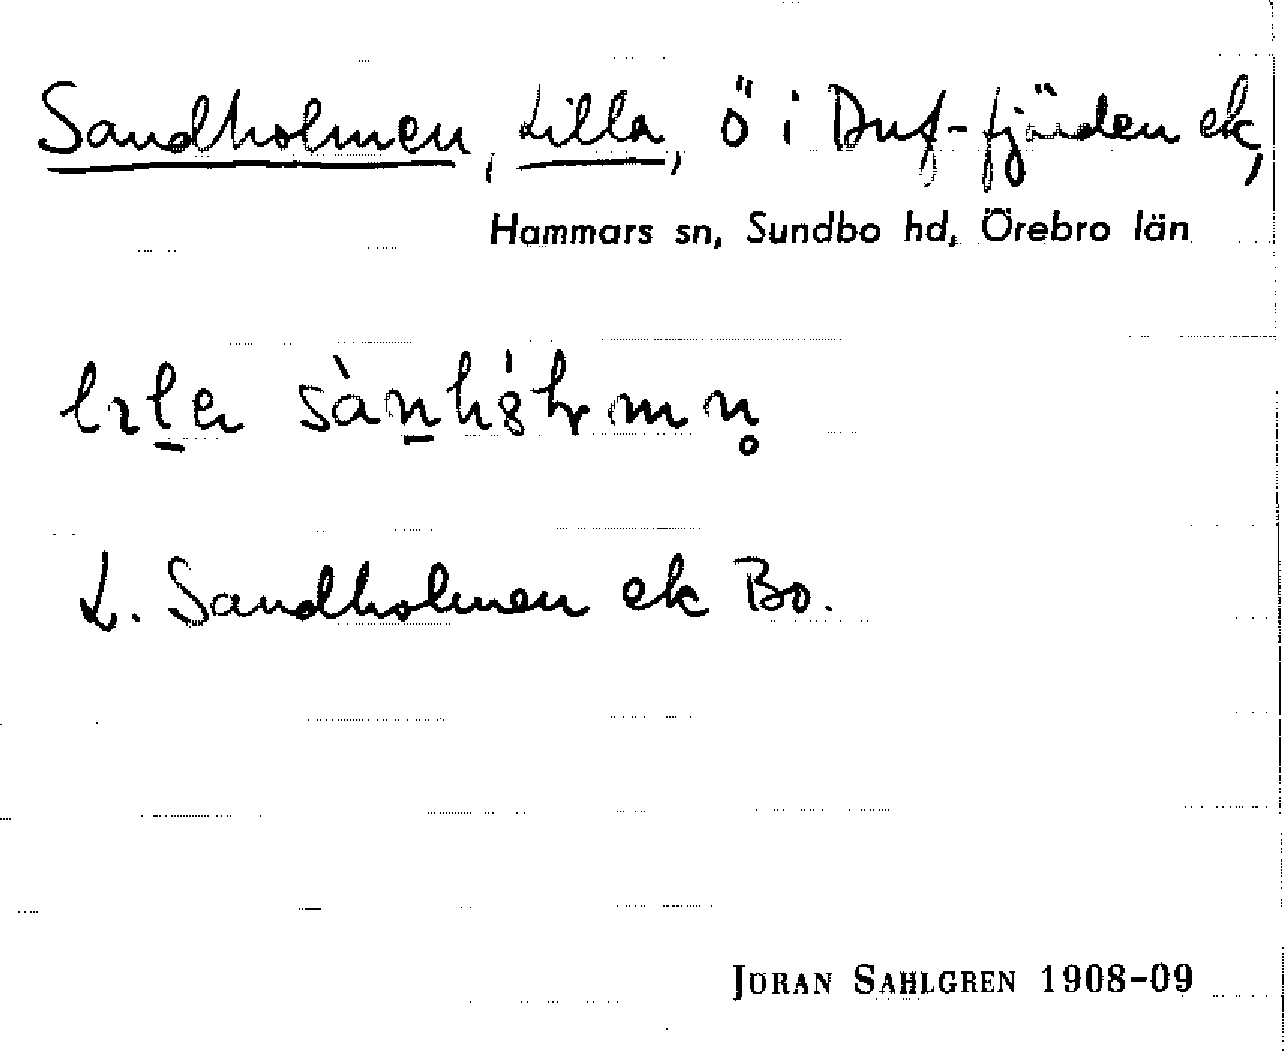 Sandholmen, Lilla, ö i Duf-fjärden ek,
Hammars sn, Sundbo hd, Örebro län
L. Sandholmen ek Bo.
JÖRAN SAHLGREN 1908-09